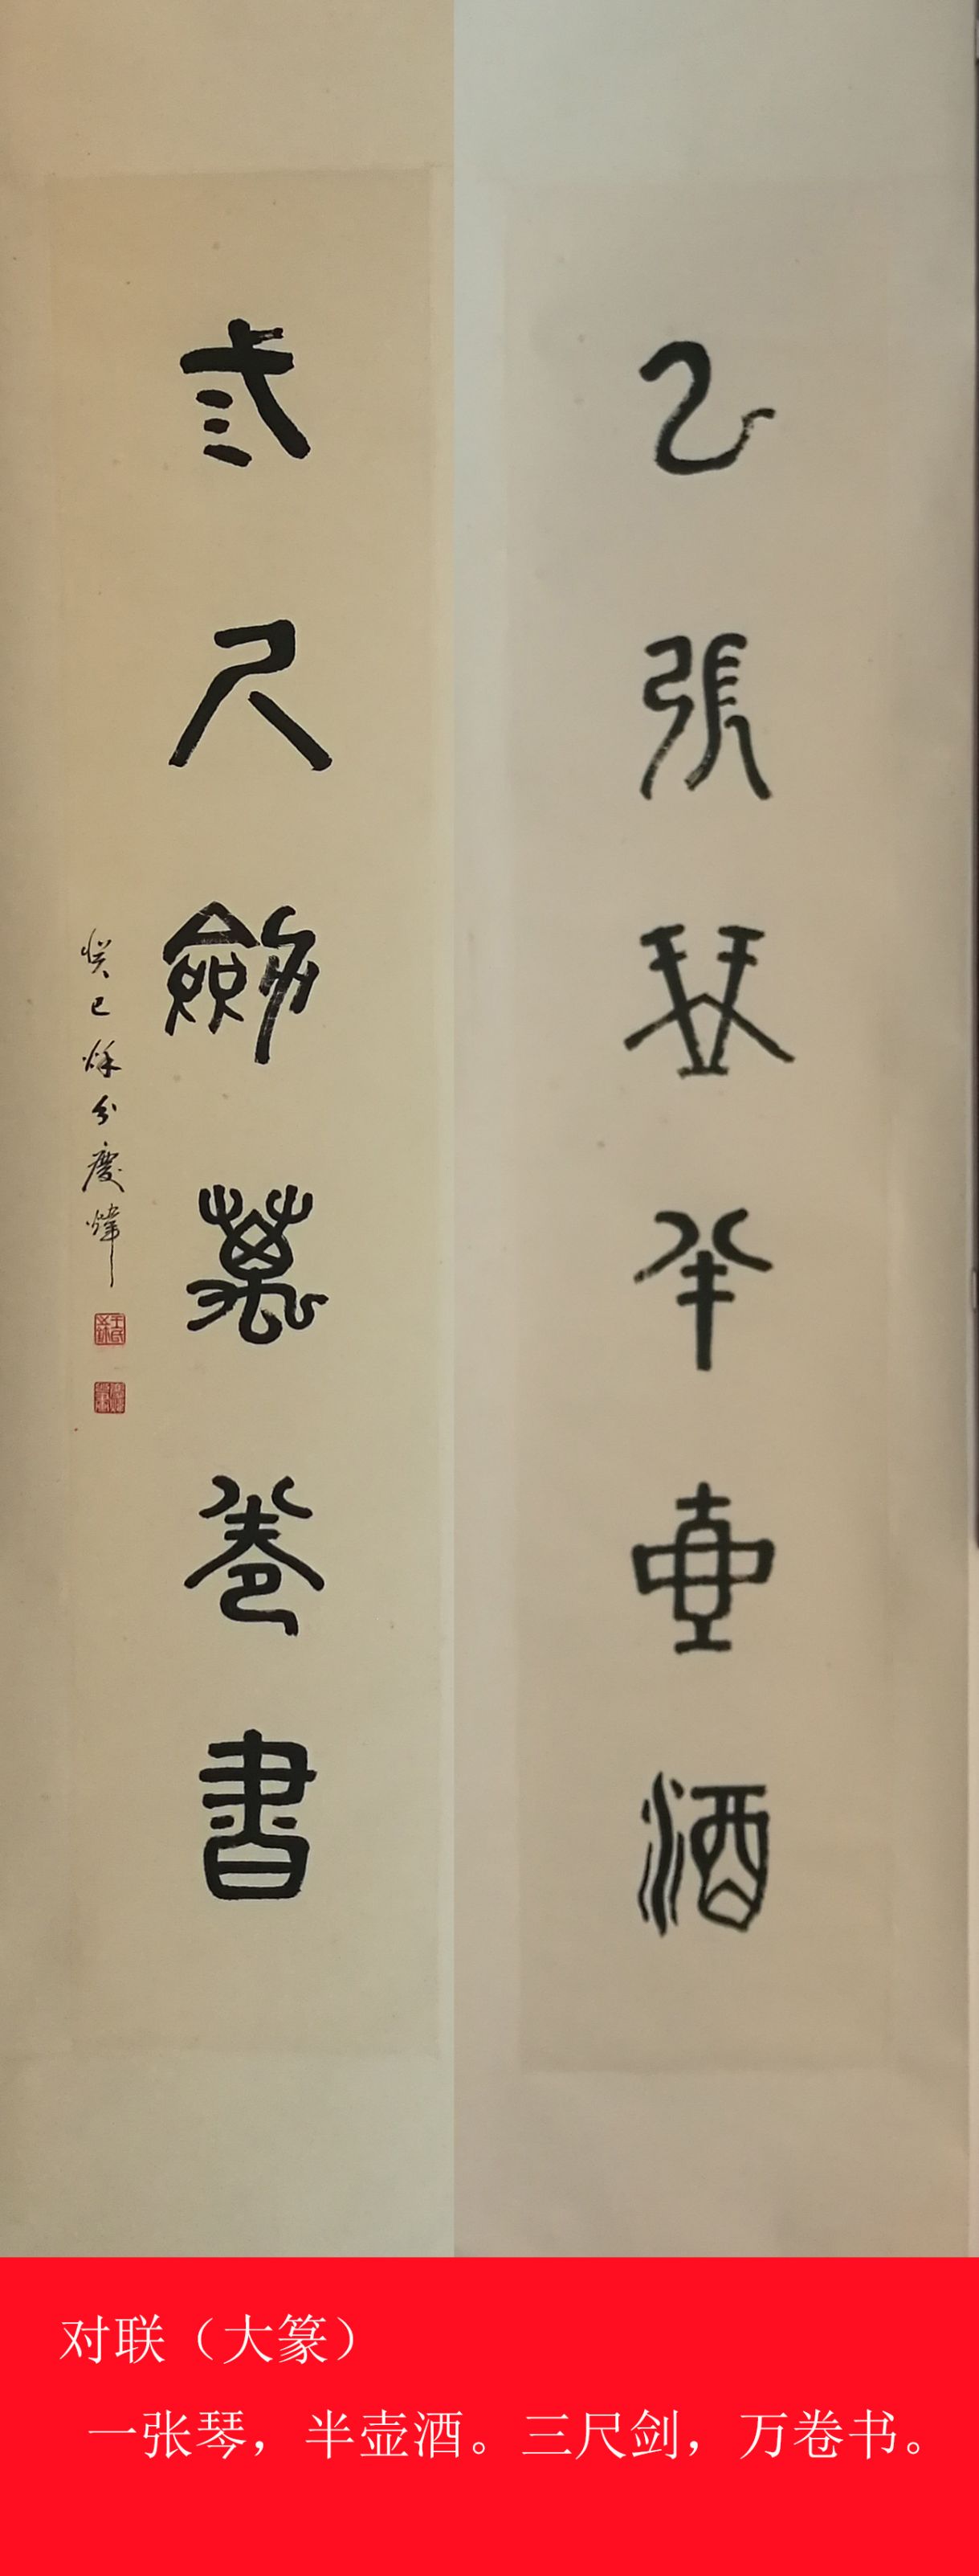 乙張琴半壷酒
弎尺劎萬卷書
癸巳烁分慶煒
对联（大篆）
一张琴，半壶酒。三尺剑，万卷书。